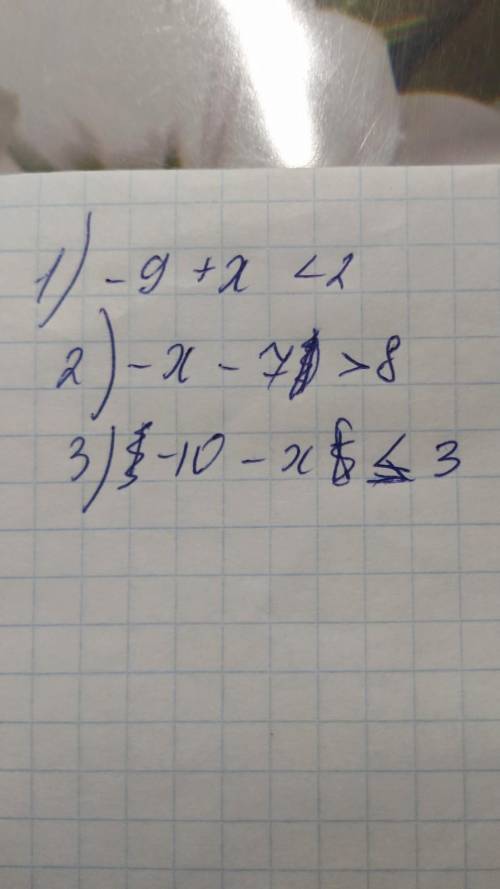 1) -9 + x < 2
2) -x - 7 > 8
3) -10 - x ≤ 3